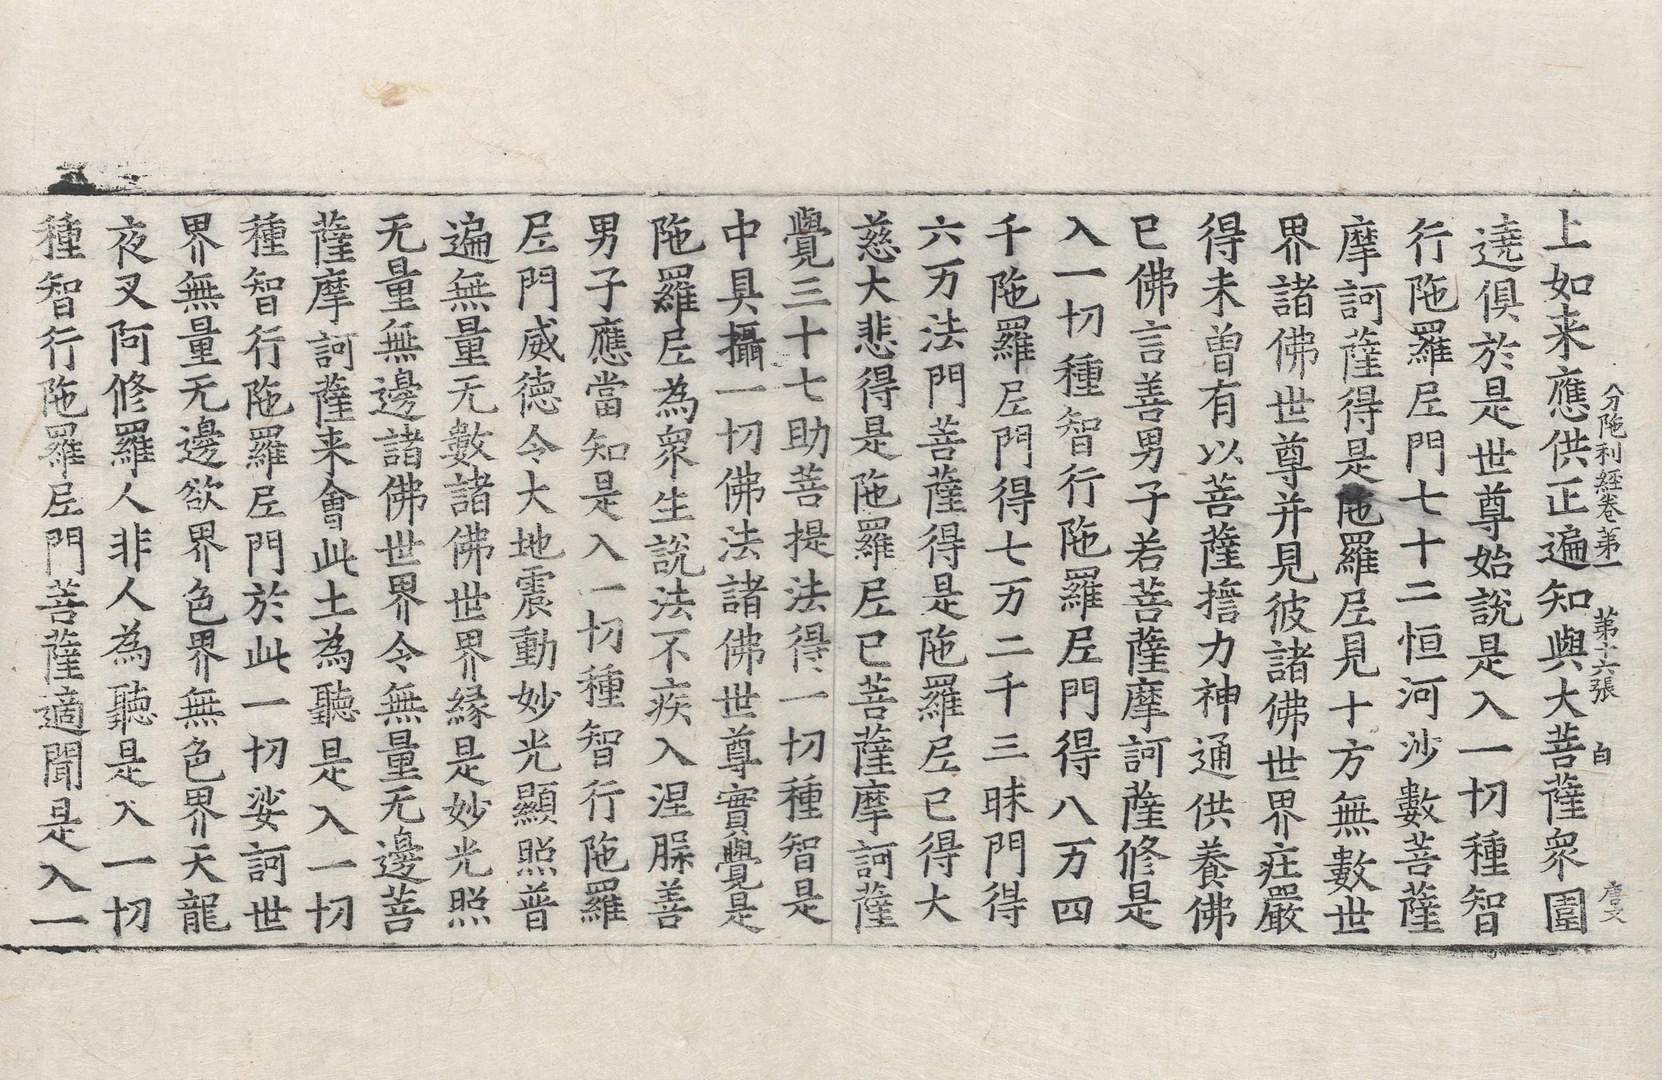 上如来應供正遍知與大菩薩衆圍
遶俱於是世尊始說是入一切種智
行陁羅尼門七十二恒河沙數菩薩
摩訶薩得是陁羅尼見十方無數世
界諸佛世尊并見彼諸佛世界庄嚴
得未曾有以菩薩擔力神通供養佛
已佛言善男子若菩薩摩訶薩修是
入一切種智行陁羅尼門得八万四
千陁羅尼門得七万二千三昧門得
六万法門菩薩得是陁羅尼已得大
慈大悲得是陁羅尼已菩薩摩訶薩
覺三十七助菩提法得一切種智是
中具攝一切佛法諸佛世尊實覺是
陁羅尼為衆生說法不疾入涅脲善
男子應當知是入一切種智行陁羅
尼門威德令大地震動妙光顯照普
遍無量无數諸佛世界緣是妙光照
无量無邊諸佛世界令無量无邊菩
薩摩訶薩来會此土為聽是入一切
種智行陁羅尼門於此一切娑訶世
界無量无邊欲界色界無色界天龍
夜叉阿修羅人非人為聽是入一切
種智行陁羅尼門菩薩適聞是入一
分陁利經卷第一 第十六張 白